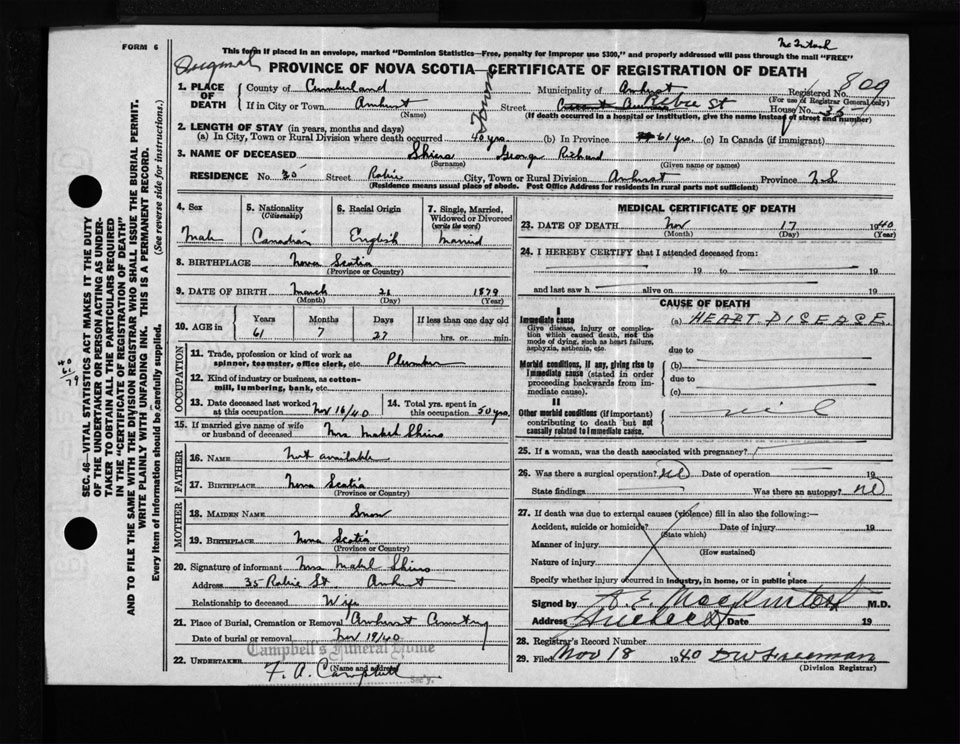 FORM 6
McIntosh
This form if placed in an envelope, marked "Dominion Statistics—Free, penalty for improper use $300," and properly addressed will pass through the mail "FREE"
Original
PROVINCE OF NOVA SCOTIA—CERTIFICATE OF REGISTRATION OF DEATH
809
1. PLACE OF DEATH
County of Cumberland Municipality of Amherst Registered No.
(For use of Registrar General only)
If in City or Town Amherst Street Robie St House No. 35
(Name) (If death occurred in a hospital or institution, give the name instead of street and number)
2. LENGTH OF STAY (in years, months and days)
(a) In City, Town or Rural Division where death occurred 48 yrs. (b) In Province 61 yrs. (c) In Canada (if immigrant)
3. NAME OF DECEASED George Richard
(Surname) (Given name or names)
RESIDENCE No. 35 Street Robie City, Town or Rural Division Amherst Province N.S
(Residence means usual place of abode. Post Office Address for residents in rural parts not sufficient)
4. Sex
Male
5. Nationality
(Citizenship)
Canadian
6. Racial Origin
English
7. Single, Married, Widowed or Divorced
(write the word)
Married
8. BIRTHPLACE Nova Scotia
(Province or Country)
9. DATE OF BIRTH March 21 1879
(Month) (Day) (Year)
10. AGE in
Years Months Days If less than one day old
61 7 27 hrs. or min.
OCCUPATION
11. Trade, profession or kind of work as spinner, teamster, office clerk, etc. Plumber
12. Kind of industry or business, as cotton-mill, lumbering, bank, etc.
13. Date deceased last worked at this occupation Nov 16/40
14. Total yrs. spent in this occupation 50 yrs.
15. If married give name of wife or husband of deceased Mrs Mabel
FATHER
16. NAME Not available
17. BIRTHPLACE Nova Scotia
(Province or Country)
MOTHER
18. MAIDEN NAME Snow
19. BIRTHPLACE Nova Scotia
(Province or Country)
20. Signature of informant Mrs Mabel
Address 35 Robie St Amherst
Relationship to deceased Wife
21. Place of Burial, Cremation or Removal Amherst Cemetery
Date of burial or removal Nov 19/40
Campbell's Funeral Home
22. UNDERTAKER F. A. Campbell
(Name and address)
Sec'y.
MEDICAL CERTIFICATE OF DEATH
23. DATE OF DEATH Nov 17 1940
(Month) (Day) (Year)
24. I HEREBY CERTIFY that I attended deceased from:
19 to 19
and last saw h alive on 19
CAUSE OF DEATH
I
Immediate cause
Give disease, injury or complication which caused death, not the mode of dying, such as heart failure, asphyxia, asthenia, etc.
(a) HEART DISEASE.
due to
Morbid conditions, if any, giving rise to immediate cause (stated in order proceeding backwards from immediate cause).
(b)
due to
(c)
II
Other morbid conditions (if important) contributing to death but not causally related to immediate cause.
nil
25. If a woman, was the death associated with pregnancy?
26. Was there a surgical operation? No Date of operation 19
State findings Was there an autopsy? No
27. If death was due to external causes (violence) fill in also the following:—
Accident, suicide or homicide? Date of injury 19
(State which)
Manner of injury
(How sustained)
Nature of injury
Specify whether injury occurred in industry, in home, or in public place
Signed by MacKintosh M.D.
Address Amherst Date 19
28. Registrar's Record Number
29. Filed Nov 18 1940 D W Freeman
(Division Registrar)
SEC. 46—VITAL STATISTICS ACT MAKES IT THE DUTY OF THE UNDERTAKER OR PERSON ACTING AS UNDERTAKER TO OBTAIN ALL THE PARTICULARS REQUIRED IN THE "CERTIFICATE OF REGISTRATION OF DEATH" AND TO FILE THE SAME WITH THE DIVISION REGISTRAR WHO SHALL ISSUE THE BURIAL PERMIT.
WRITE PLAINLY WITH UNFADING INK. THIS IS A PERMANENT RECORD.
Every item of information should be carefully supplied. (See reverse side for instructions.)
40
61
79